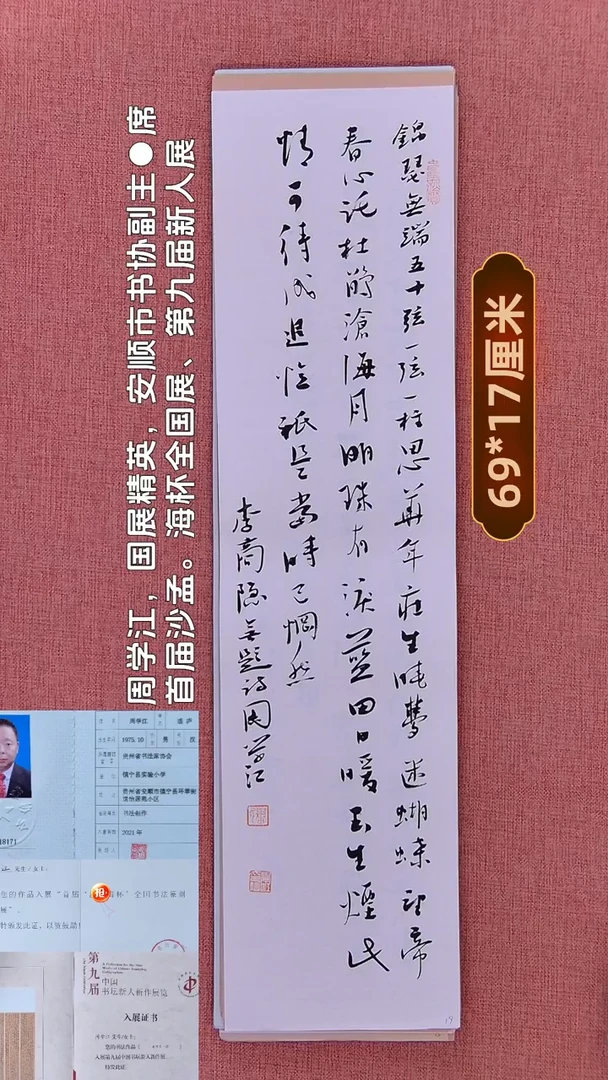 錦瑟無端五十弦一弦一柱思華年莊生曉夢迷蝴蝶望帝
春心託杜鵑滄海月明珠有淚藍田日暖玉生煙此
情可待成追憶祇是當時已惘然
李商隱無題詩周學江
19
69*17厘米
周学江，国展精英，安顺市书协副主●席
首届沙孟。海杯全国展、第九届新人展
周学江
1975.10
男
汉
贵州省书法家协会
镇宁县实验小学
书法创作
2021年
18171
先生/女士：
抢
第九届
中国
书坛新人新作展览
入展证书
特发此证